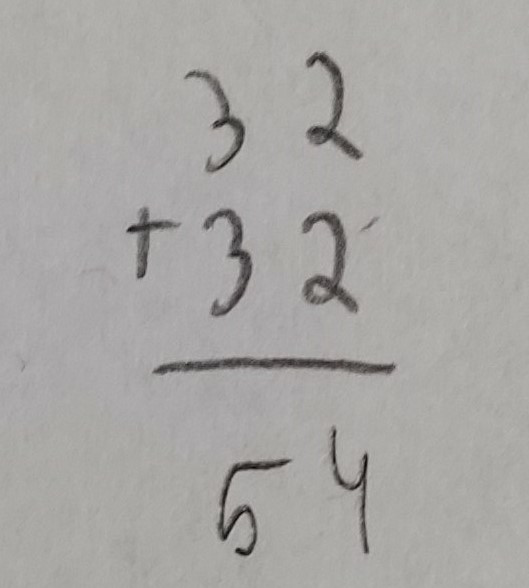 32
+32
54